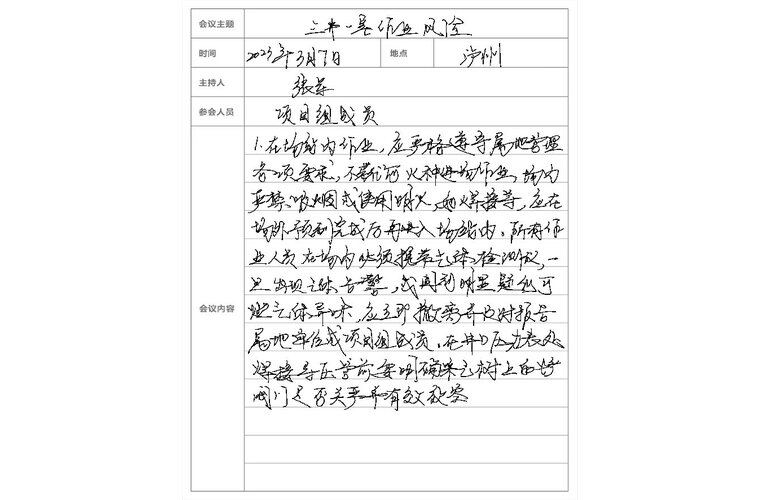 会议主题 作业风险
时间 2023年3月7日 地点 泸州
主持人 张
参会人员 项目组成员
会议内容
1.在场站内作业,应严格遵守属地管理
各项要求,不携带火种进场作业,场内
严禁吸烟或使用明火,如焊接等,应在
场外预制完成后再进入场站内。所有作
业人员在场内必须携带气体检测仪,一
旦出现气体告警,或闻到明显疑似可
燃气体异味,应立即撤离并及时报告
属地单位或项目组成员。在井口压力表处
焊接导压管前要明确采气树上的
阀门是否关严并有效放空